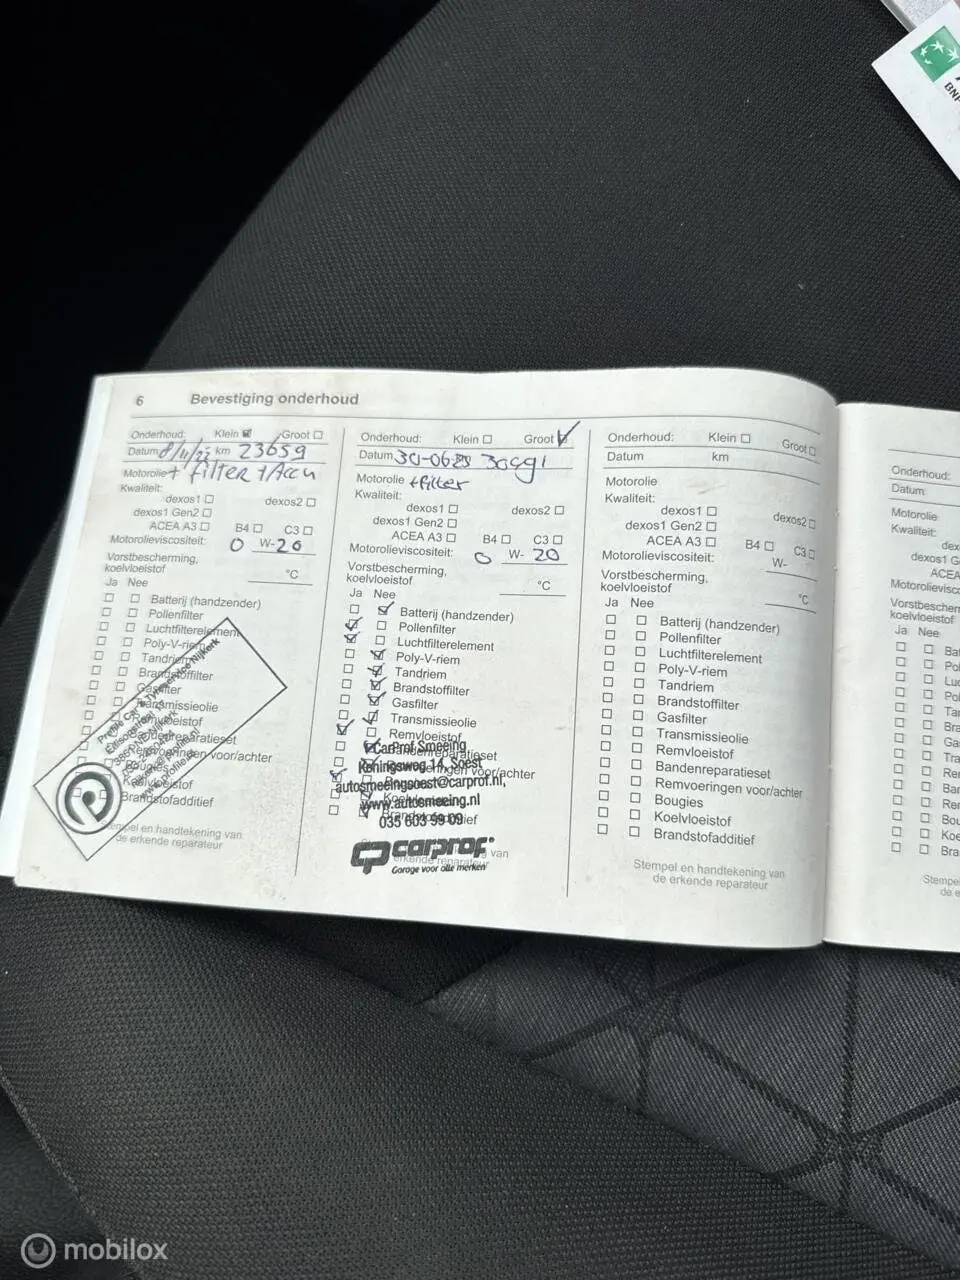 BNP
6 Bevestiging onderhoud
Onderhoud: Klein Groot
Datum 8/11/23 km 23659
Motorolie + filter + Accu
Kwaliteit:
dexos1 dexos2
dexos1 Gen2
ACEA A3 B4 C3
Motorolieviscositeit: 0 W-20
Vorstbescherming,
koelvloeistof °C
Ja Nee
Batterij (handzender)
Pollenfilter
Luchtfilterelement
Poly-V-riem
Tandriem
Brandstoffilter
Gasfilter
Transmissieolie
Remvloeistof
Bandenreparatieset
Remvoeringen voor/achter
Bougies
Koelvloeistof
Brandstofadditief
Stempel en handtekening van
de erkende reparateur
Onderhoud: Klein Groot
Datum 30-06
Motorolie + filter
Kwaliteit:
dexos1 dexos2
dexos1 Gen2
ACEA A3 B4 C3
Motorolieviscositeit: 0 W- 20
Vorstbescherming,
koelvloeistof °C
Ja Nee
Batterij (handzender)
Pollenfilter
Luchtfilterelement
Poly-V-riem
Tandriem
Brandstoffilter
Gasfilter
Transmissieolie
Remvloeistof
Bandenreparatieset
CarProf Smeeing
voor/achter
Koningsweg 14, Soest
autosmeeingsoest@carprof.nl,
www.autosmeeing.nl
035 603 59 09
carprof
van
erkende reparateur
Garage voor alle merken
Onderhoud: Klein Groot
Datum km
Motorolie
Kwaliteit:
dexos1 dexos2
dexos1 Gen2
ACEA A3 B4 C3
Motorolieviscositeit: W-
Vorstbescherming,
koelvloeistof °C
Ja Nee
Batterij (handzender)
Pollenfilter
Luchtfilterelement
Poly-V-riem
Tandriem
Brandstoffilter
Gasfilter
Transmissieolie
Remvloeistof
Bandenreparatieset
Remvoeringen voor/achter
Bougies
Koelvloeistof
Brandstofadditief
Stempel en handtekening van
de erkende reparateur
Onderhoud:
Datum:
Motorolie
Kwaliteit:
de
dexo
ACEA
Motorolievisc
Vorstbescherm
koelvloeistof
Ja Nee
Bat
Po
Lu
Po
Ta
Bra
Ga
Tra
Re
Bar
Rer
Bou
Koe
Bra
Stempel
de e
mobilox